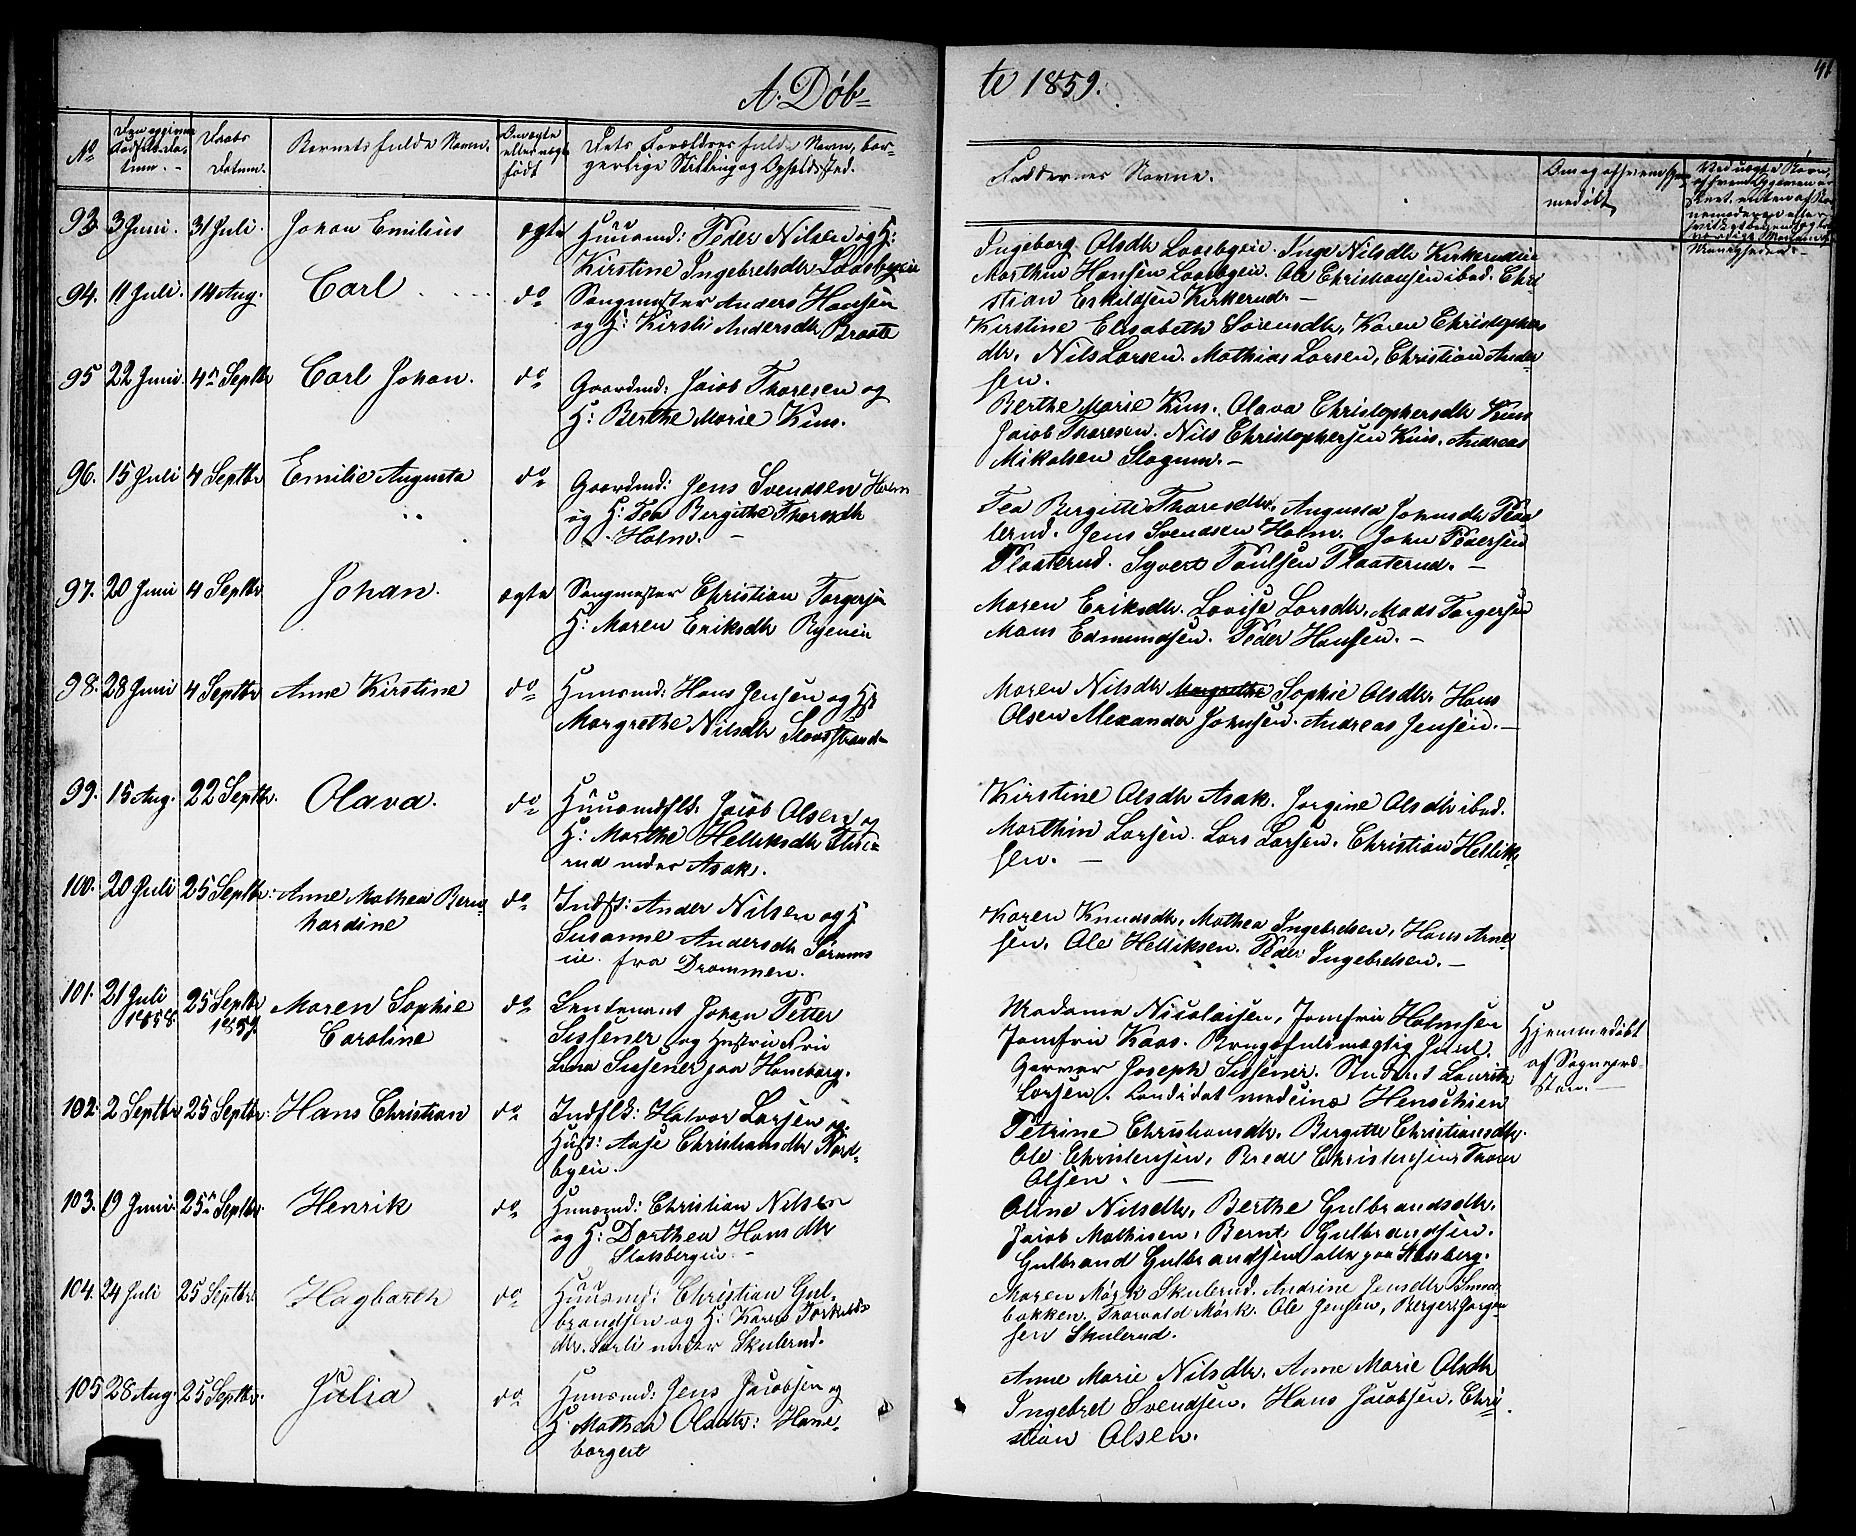 A. Døb=
te 1859.
41
No
Den opgivne Fødselsdatum.
Daabs Datum.
Barnets fulde Navn.
Om ægte eller uægte født
Dets Forældres fulde Navn, borgerlige Stilling og Opholdssted.
Faddernes Navne.
Om og af hvem hjemmedøbt
93. 3 Juni. 31 Juli. Johan Emilius ægte
Huusmd: Peder Nilsen og H:
Kirstine Ingebretsdtr
Ingeborg Olsdtr Inge Nilsdtr
Marthin Hansen Ole Christiansen ibid. Chri-
stian Eskildsen Kirkerud. —
94. 11 Juli. 14 Aug. Carl do
Sangmester Anders Hansen
og H: Kirsti Andersdtr Braate
Kirstine Elisabeth Sørensdtr, Karen Christophers
dtr, Nils Larsen. Mathias Larsen, Christian Ander
sen.
95 22 Juni. 4n Septbr Carl Johan. do
Gaardmd: Jacob Thoresen og
H: Berthe Marie Kius.
Berthe Marie Kius. Olava Christophersdtr Kius
Jacob Thoresen. Nils Christophersen Kius, Andreas
Mikalsen Slogum. —
96. 15 Juli 4 Septbr Emilie Augusta do
Gaardmd: Jens Svendsen Holm
og H: Tea Birgithe Thoresdtr
Holm. —
Tea Birgitte Thoresdtr. Augusta Johnsdtr Plaa
terud. Jens Svendsen Holm. John Pedersen
Plaaterud. Syvert Poulsen Plaaterud. —
97. 20 Juni 4 Septbr Johan. ægte
Sangmester Christian Torgersen
H: Maren Eriksdtr Ryeneie
Maren Eriksdtr. Lovise Larsdtr, Mads Torgersen
Mons Edmundsen. Peder Hansen. —
98. 28 Juni 4 Septbr Anne Kirstine do
Huusmd: Hans Jensen og H:
Margrethe Nilsdtr
Maren Nilsdtr Margrethe Sophie Olsdtr, Hans
Olsen Alexander Johnsen. Andreas Jensen. —
99. 15 Aug. 22 Septbr. Olava. do
Huusmdflk: Jacob Olsen og
H: Marthe Helliksdtr
rud under Asak.
Kirstine Olsdtr Asak. Jorgine Olsdtr ibid.
Marthin Larsen. Lars Larsen. Christian Hellik
sen. —
100. 20 Juli 25 Septbr. Anne Mathea Bern
hardine do
Indst: Ander Nilsen og H
Susanne Andersdtr Sørums
eie. fra Drammen.
Karen Knudsdtr, Mathea Ingebretsen, Hans Arne
sen, Ole Helliksen. Peder Ingebretsen. —
101. 21 Juli 1858. 25 Septbr 1859. Maren Sophie
Caroline do
Leutenant Johan Petter
Sissener og Hustrue Frue
Lina Sissener paa Haneborg.
Madame Nicolaisen, Jomfrue Holmsen
Jomfrue Kaas. Brugsfuldmægtig Juul.
Garver Joseph Sissener. Student Lauritz
Larsen. Candidat medcinæ Henschien
Hjemmedøbt
af Sognepræ-
sten. —
102. 2 Septbr 25 Septbr. Hans Christian do
Indflk: Halvor Larsen og
Hust: Aase Christiansdtr Nord-
byeie.
Petrine Christiansdtr. Birgitte Christiansdtr.
Ole Christensen, Brede Christensen Thore
Olsen. —
103. 19 Juni. 25n Septbr. Henrik do
Huusmd: Christian Nilsen
og H: Dorthea Hansdtr
Slaksbergeie. —
Oline Nilsdtr, Berthe Gulbrandsdtr.
Jacob Mathisen, Bernt Gulbrandsen.
Gulbrand Gulbrandsen alle paa
104. 24 Juli 25 Septbr. Hagbarth do
Huusmd: Christian Gul-
brandsen og H: Karen Torkelds
dtr. under Skulerud.
Maren Mørk Skulerud. Andrine Jensdtr Smed
bakken. Thorvald Mørk. Ole Jensen, Berger Jørgen
sen Skulerud.
105 28 Aug. 25 Septbr. Julia do
Huusmd: Jens Jacobsen og
H: Mathea Olsdtr: Hane-
borgeie
Anne Marie Nilsdtr. Anne Marie Olsdtr
Ingebret Svendsen, Hans Jacobsen, Chri-
stian Olsen.